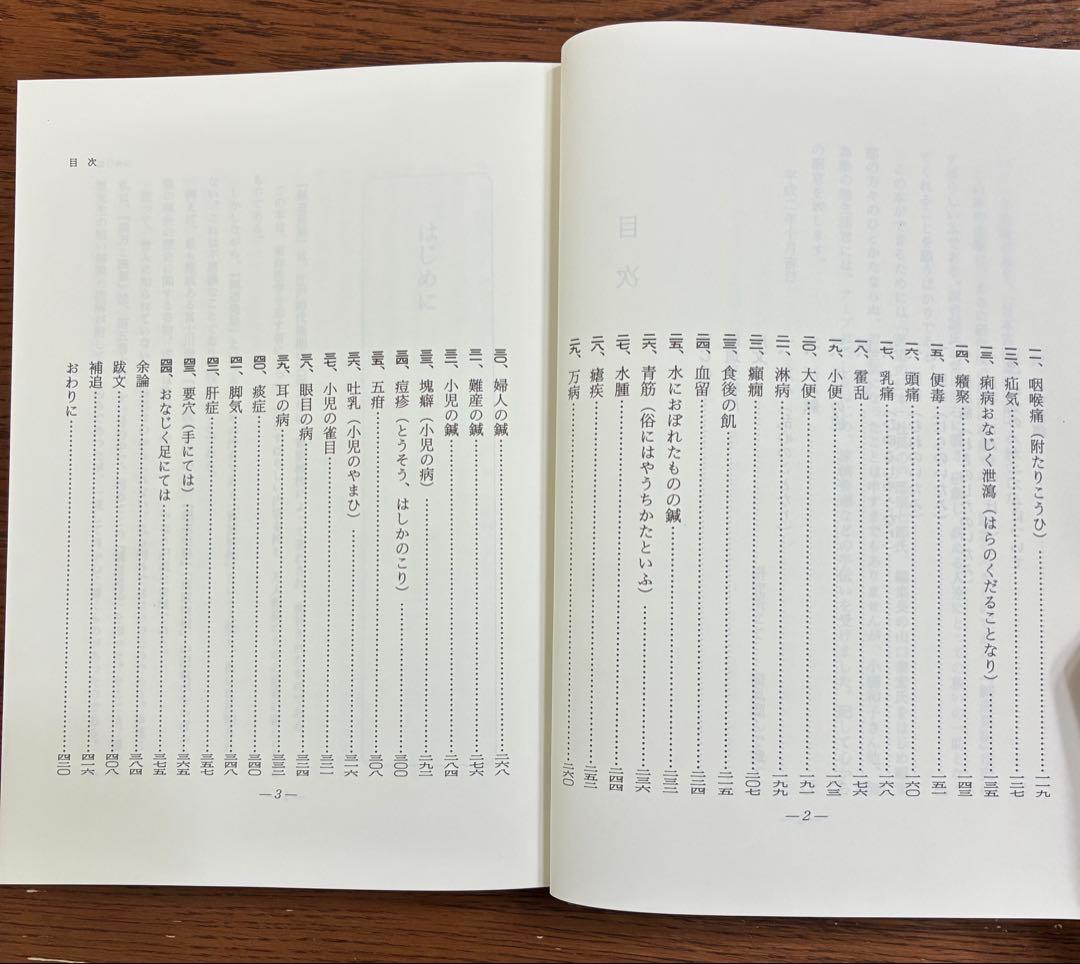 一一、咽喉痛（附たりこうひ）……一一九
一二、疝気……一二七
一三、痢病おなじく泄瀉（はらのくだることなり）……一三五
一四、癪聚……一四三
一五、便毒……一五一
一六、頭痛……一六〇
一七、乳痛……一六八
一八、霍乱……一七六
一九、小便……一八三
二〇、大便……一九一
二一、淋病……一九九
二二、癲癇……二〇七
二三、食後の飢……二一五
二四、血留……二二四
二五、水におぼれたものの鍼……二三二
二六、青筋（俗にはやうちかたといふ）……二三六
二七、水腫……二四四
二八、瘧疾……二五二
二九、万病……二六〇
—2—
目次
三〇、婦人の鍼……二六八
三一、難産の鍼……二七六
三二、小児の鍼……二八四
三三、塊癖（小児の病）……二九二
三四、痘疹（とうそう、はしかのこり）……三〇〇
三五、五疳……三〇八
三六、吐乳（小児のやまひ）……三一六
三七、小児の雀目……三二一
三八、眼目の病……三二四
三九、耳の病……三三二
四〇、痰症……三四〇
四一、脚気……三四八
四二、肝症……三五七
四三、要穴（手にては）……三六五
四四、おなじく足にては……三七五
余論……三八四
跋文……四〇八
補追……四一六
おわりに……四二〇
—3—